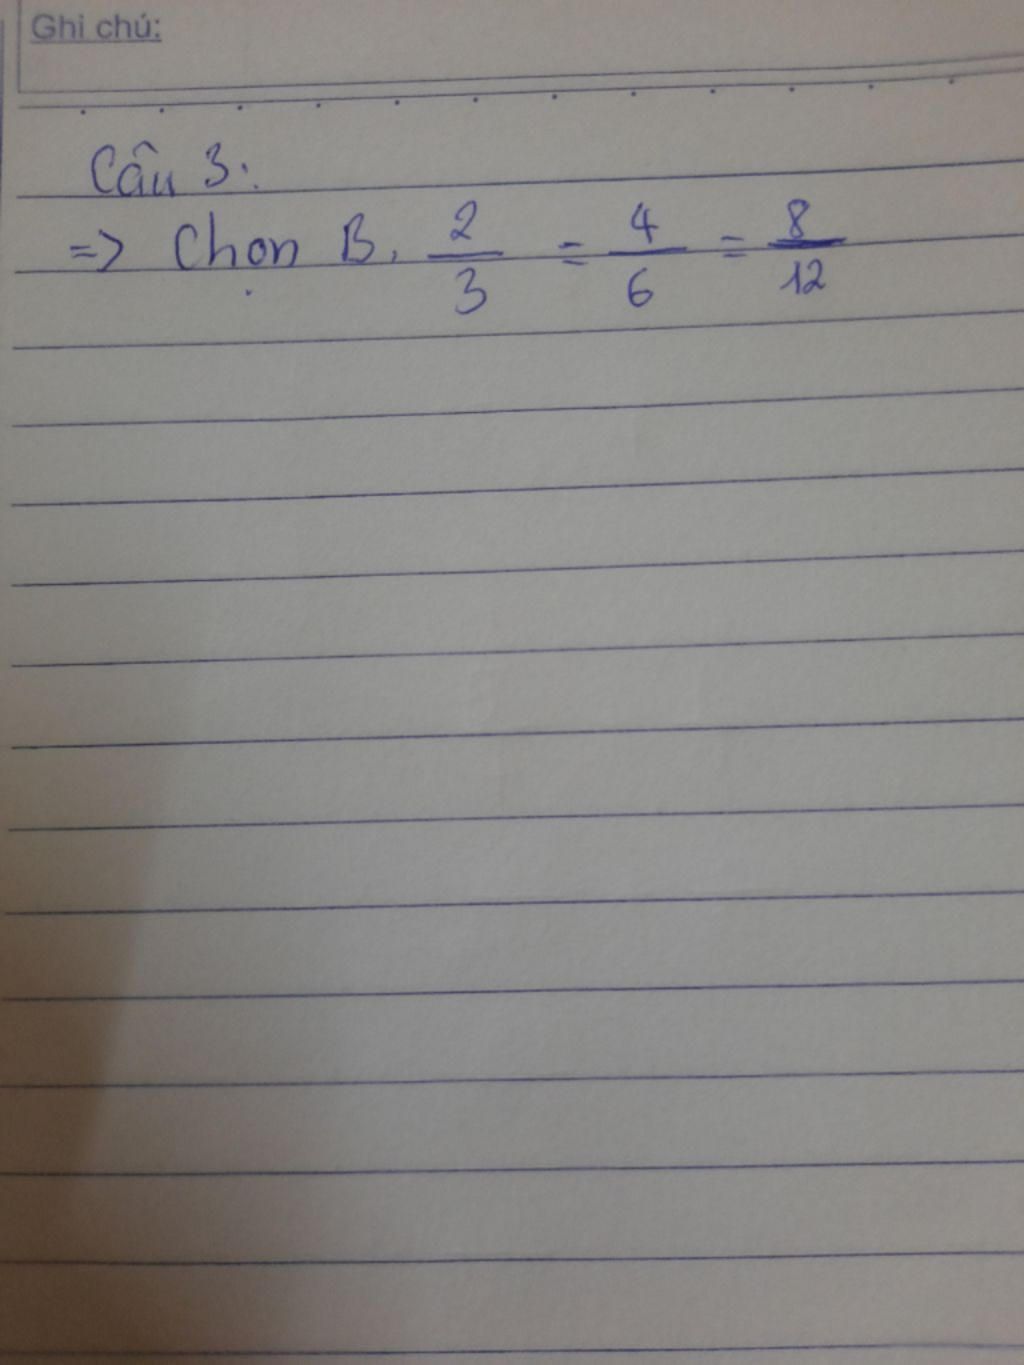 Ghi chú:
Câu 3:
=> Chọn B. 2/3 = 4/6 = 8/12